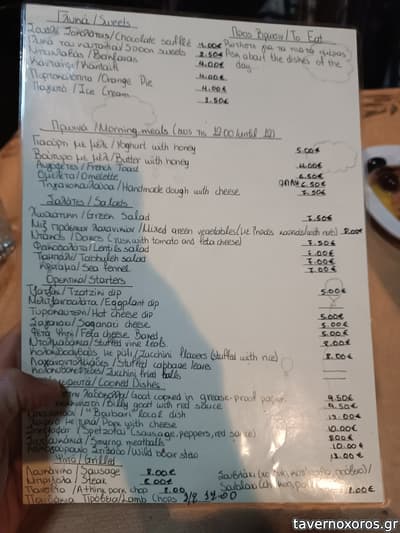 Γλυκά/Sweets
Σουφλέ Σοκολάτας/Chocolate soufflé 4.00€
Γλυκά του κουταλιού/Spoon sweets 2.50€
Μπακλαβάς/ 4.00€
Κανταΐφι/Kantaifi 4.00€
Πορτοκαλόπιτα/Orange Pie 4.00€
Παγωτό/Ice Cream 2.50€
Προς Βρώση/To Eat
Ρωτήστε για τα πιάτα ημέρας
Ask about the dishes of the
day
Πρωινά/Morning meals (έως τις 12:00/until 12)
Γιαούρτι με μέλι/Yoghurt with honey 5.00€
Βούτυρο με μέλι/Butter with honey 4.00€
Αυγοφέτες/French Toast 6.50€
Ομελέτα/Omelette 6.50€
Τηγανοκουλούρα/Handmade dough with cheese 7.50€
Σαλάτες/Salads
/Green Salad 7.50€
Μιξ πράσινων λαχανικών/Mixed green vegetables 8.00€
Ντάκος/Dakos (rusk with tomato and feta cheese) 7.50€
Φακοσαλάτα/Lentils salad 7.00€
Ταμπουλέ/Tabbuleh salad 7.00€
Κρίταμο/Sea fennel 7.00€
Ορεκτικά/Starters
Τζατζίκι/Tzatziki dip 5.00€
Μελιτζανοσαλάτα/Eggplant dip
Τυροκαυτερή/Hot cheese dip 5.00€
Σαγανάκι/Saganaki cheese 5.00€
Φέτα Ψητή/Feta cheese Baked 5.00€
Ντολμαδάκια/Stuffed vine leafs 8.00€
Κολοκυθοανθούς με ρύζι/Zucchini flowers (stuffed with rice) 8.00€
Λαχανοντολμάδες/Stuffed cabbage leaves
Κολοκυθοκεφτέδες/Zucchini fried balls
/Cooked Dishes
/Goat cooked in grease-proof paper 9.50€
/Billy goat with red sauce 9.50€
/"Bourbari" local dish 12.00€
/Pork with cheese 10.00€
/Spetzofai (sausage, peppers, red sauce) 8.00€
Σουτζουκάκια/Smyrna meatballs 10.00€
Αγριογούρουνο Στιφάδο/Wild boar stew 12.00€
Ψητά/Grilled
Λουκάνικο/Sausage 8.00€
Μπριζόλα/Steak 8.00€
Πανσέτα/A thin pork chop 8.00
Παϊδάκια Πρόβεια/Lamb Chops
Σουβλάκι
1.00€
tavernoxoros.gr